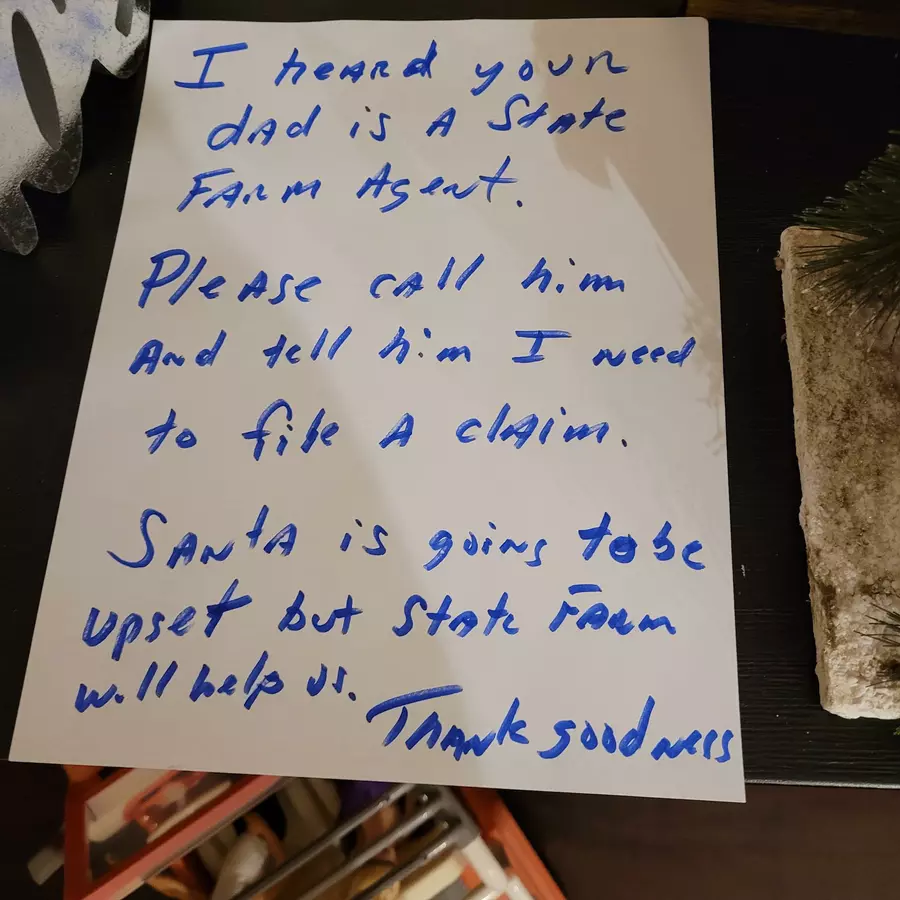 I heard your
dad is a State
Farm Agent.
Please call him
And tell him I need
to file a claim.
Santa is going to be
upset but State Farm
will help us.
Thank goodness